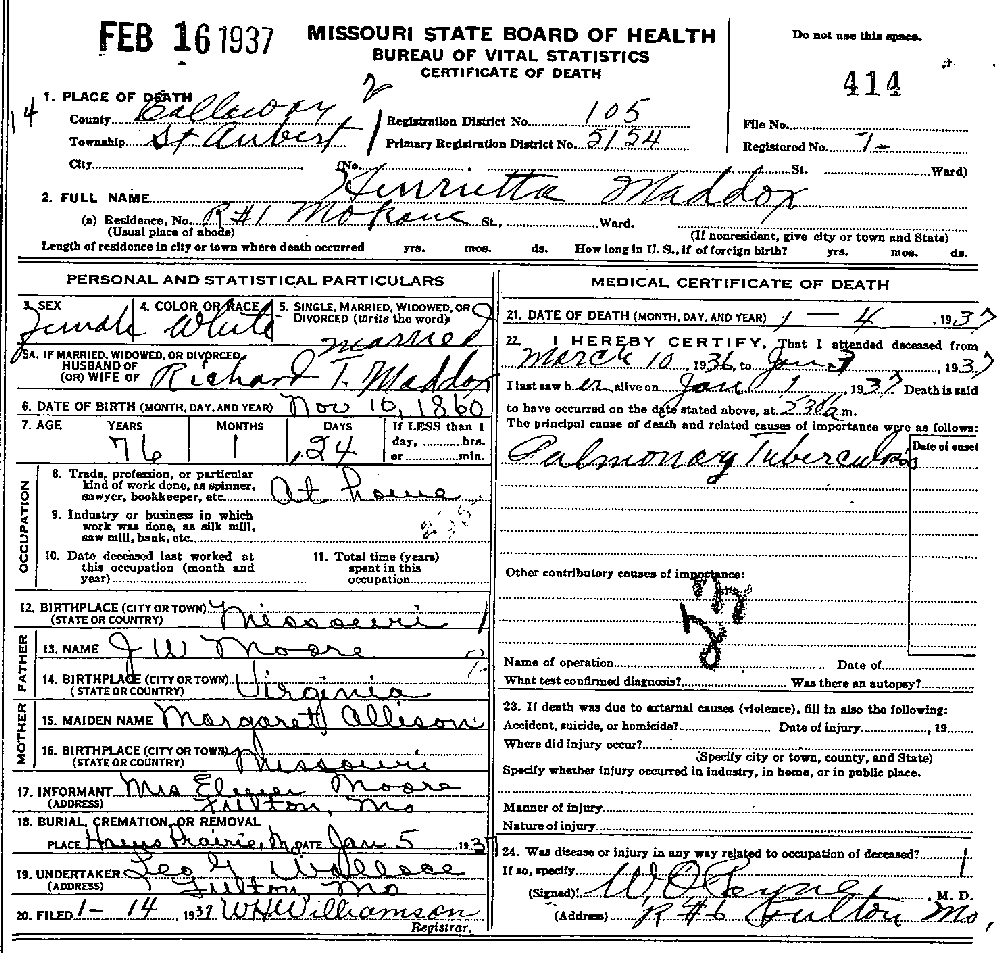 FEB 16 1937
MISSOURI STATE BOARD OF HEALTH
BUREAU OF VITAL STATISTICS
CERTIFICATE OF DEATH
Do not use this space.
414
1. PLACE OF DEATH
14
County Callaway 2
Township St Aubert 1
City
Registration District No. 105
Primary Registration District No. 2124
File No.
Registered No. 7-
(No. St. Ward)
2. FULL NAME Henrietta Maddox
(a) Residence, No. R#1 Mokane St., Ward.
(Usual place of abode) (If nonresident, give city or town and State)
Length of residence in city or town where death occurred yrs. mos. ds. How long in U. S., if of foreign birth? yrs. mos. ds.
PERSONAL AND STATISTICAL PARTICULARS
3. SEX 4. COLOR OR RACE 5. SINGLE, MARRIED, WIDOWED, OR
DIVORCED (write the word)
Female White Married
5A. IF MARRIED, WIDOWED, OR DIVORCED
HUSBAND OF
(OR) WIFE OF Richard T. Maddox
6. DATE OF BIRTH (MONTH, DAY, AND YEAR) Nov 10, 1860
7. AGE YEARS MONTHS DAYS If LESS than 1
day, hrs.
or min.
76 1 24
OCCUPATION
8. Trade, profession, or particular
kind of work done, as spinner,
sawyer, bookkeeper, etc. At home
9. Industry or business in which
work was done, as silk mill,
saw mill, bank, etc.
10. Date deceased last worked at
this occupation (month and
year)
11. Total time (years)
spent in this
occupation
12. BIRTHPLACE (CITY OR TOWN) Missouri 1
(STATE OR COUNTRY)
FATHER
13. NAME J W Moore
14. BIRTHPLACE (CITY OR TOWN) Virginia
(STATE OR COUNTRY)
MOTHER
15. MAIDEN NAME Margaret Allison
16. BIRTHPLACE (CITY OR TOWN) Missouri
(STATE OR COUNTRY)
17. INFORMANT Mrs Elmer Moore
(ADDRESS) Fulton, Mo
18. BURIAL, CREMATION, OR REMOVAL
PLACE Hams Prairie, Mo DATE Jan 5 1937
19. UNDERTAKER Leo Wallace
(ADDRESS) Fulton Mo
20. FILED 1-14, 1937 W H Williamson
Registrar.
MEDICAL CERTIFICATE OF DEATH
21. DATE OF DEATH (MONTH, DAY, AND YEAR) 1-4, 1937
22. I HEREBY CERTIFY, That I attended deceased from
March 10 1936, to Jan 3, 1937
I last saw her alive on Jan 1 1937 Death is said
to have occurred on the date stated above, at 2 30 a m.
The principal cause of death and related causes of importance were as follows:
Date of onset
Pulmonary Tuberculosis
Other contributory causes of importance:
Name of operation Date of
What test confirmed diagnosis? Was there an autopsy?
23. If death was due to external causes (violence), fill in also the following:
Accident, suicide, or homicide? Date of injury , 19
Where did injury occur?
(Specify city or town, county, and State)
Specify whether injury occurred in industry, in home, or in public place.
Manner of injury
Nature of injury
24. Was disease or injury in any way related to occupation of deceased? 1
If so, specify
(Signed) W. O. Payne, M. D.
(Address) R#6 Fulton Mo.